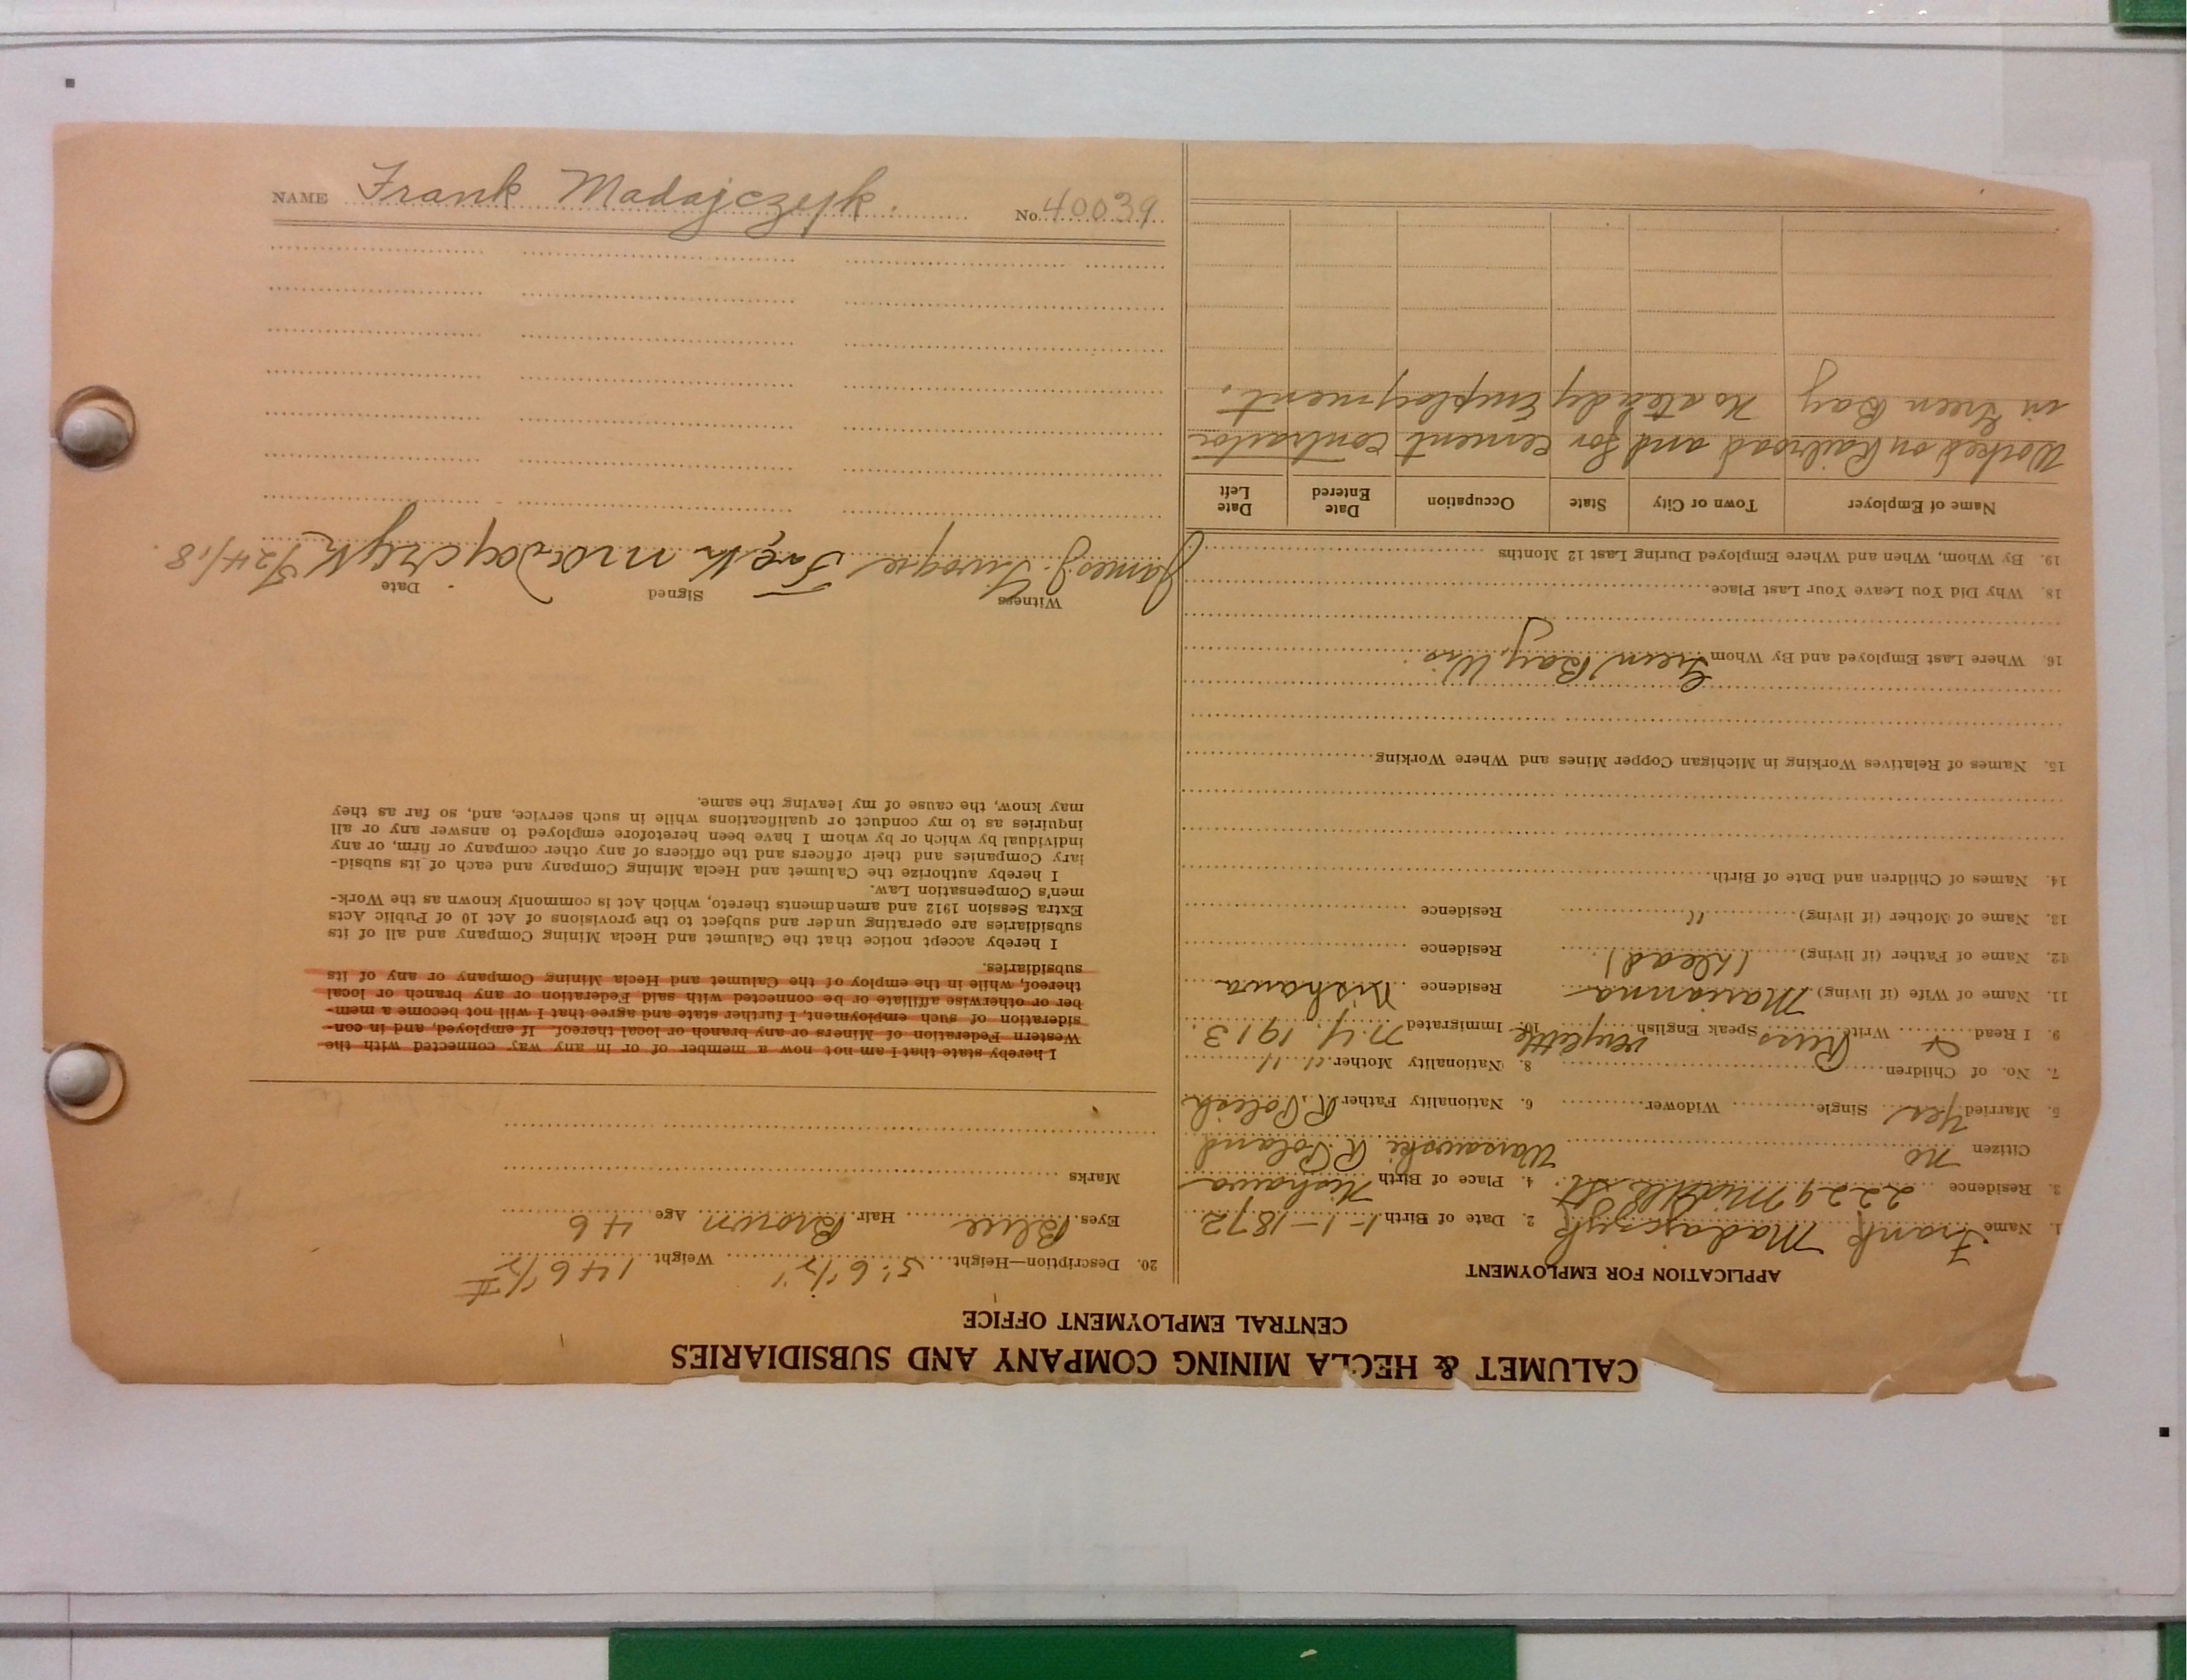 CALUMET & HECLA MINING COMPANY AND SUBSIDIARIES
CENTRAL EMPLOYMENT OFFICE
APPLICATION FOR EMPLOYMENT
1. Name Frank Madajczyk 2. Date of Birth 1-1-1872
3. Residence 2229 Middle St. 4. Place of Birth Kishawa
Citizen no Warsawski R. Poland
5. Married Yes Single Widower 6. Nationality Father R. Polish
7. No. of Children 8. Nationality Mother " "
9. I Read & Write Russ Speak English very little 10. Immigrated N.Y. 1913.
11. Name of Wife (if living) Marianna Residence Kishawa
12. Name of Father (if living) (dead) Residence
13. Name of Mother (if living) " Residence
14. Names of Children and Date of Birth
15. Names of Relatives Working in Michigan Copper Mines and Where Working
16. Where Last Employed and By Whom Green Bay, Wis.
18. Why Did You Leave Your Last Place
19. By Whom, When and Where Employed During Last 12 Months
Name of Employer Town or City State Occupation Date Entered Date Left
Worked on Railroad and for cement contractor
in Green Bay No steady Employment.
20. Description—Height 5' 6 1/2" Weight 146 1/2 #
Eyes Blue Hair Brown Age 46
Marks
I hereby state that I am not now a member of or in any way connected with the
Western Federation of Miners or any branch or local thereof. If employed, and in con-
sideration of such employment, I further state and agree that I will not become a mem-
ber or otherwise affiliate or be connected with said Federation or any branch or local
thereof, while in the employ of the Calumet and Hecla Mining Company or any of its
subsidiaries.
I hereby accept notice that the Calumet and Hecla Mining Company and all of its
subsidiaries are operating under and subject to the provisions of Act 10 of Public Acts
Extra Session 1912 and amendments thereto, which Act is commonly known as the Work-
men's Compensation Law.
I hereby authorize the Calumet and Hecla Mining Company and each of its subsid-
iary Companies and their officers and the officers of any other company or firm, or any
individual by which or by whom I have been heretofore employed to answer any or all
inquiries as to my conduct or qualifications while in such service, and, so far as they
may know, the cause of my leaving the same.
Witness Signed Date
James J. 5/24/18.
NAME Frank Madajczyk. No. 40039